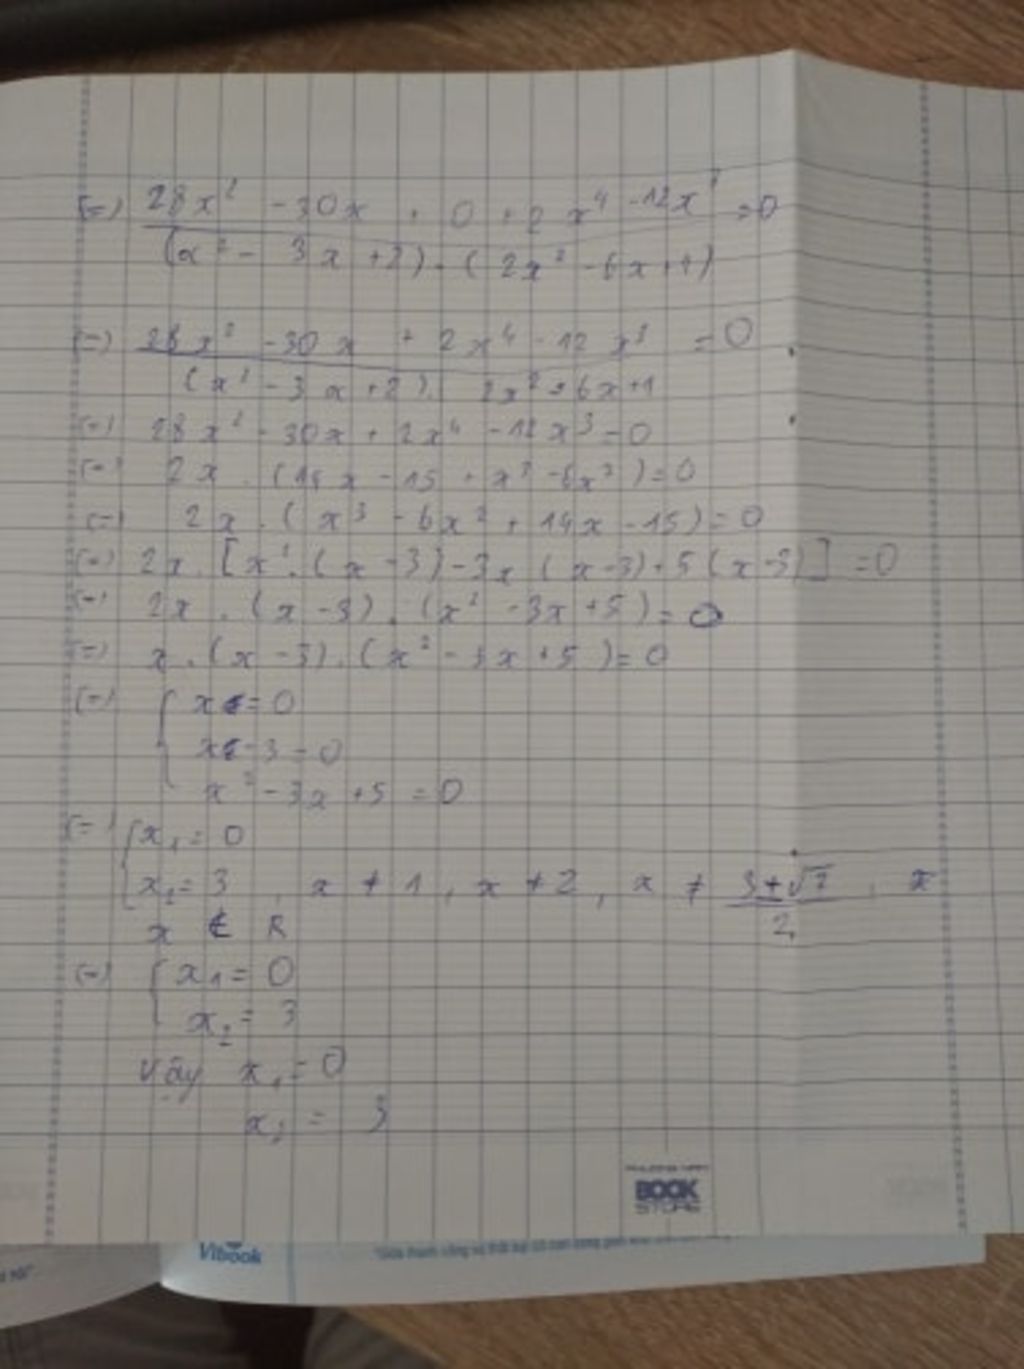 (=) 28x² - 30x + 0 + 2x⁴ - 12x³ = 0
(x² - 3x + 2) . (2x² - 6x + 1)
(=) 28x² - 30x + 2x⁴ - 12x³ = 0
(x² - 3x + 2) . 2x² - 6x + 1
(=) 28x² - 30x + 2x⁴ - 12x³ = 0
(=) 2x . (14x - 15 + x³ - 6x²) = 0
(=) 2x . (x³ - 6x² + 14x - 15) = 0
(=) 2x . [x² . (x - 3) - 3x (x - 3) + 5 (x - 3)] = 0
(=) 2x . (x - 3) . (x² - 3x + 5) = 0
(=) x . (x - 3) . (x² - 3x + 5) = 0
(=) { x = 0
x - 3 = 0
x² - 3x + 5 = 0
(=) { x₁ = 0
x₂ = 3 , x ≠ 1 , x ≠ 2 , x ≠ (3 ± √7)/2 , x
x ∉ R
(=) { x₁ = 0
x₂ = 3
Vậy x₁ = 0
x₂ = 3
BOOK
STORE
Vibook